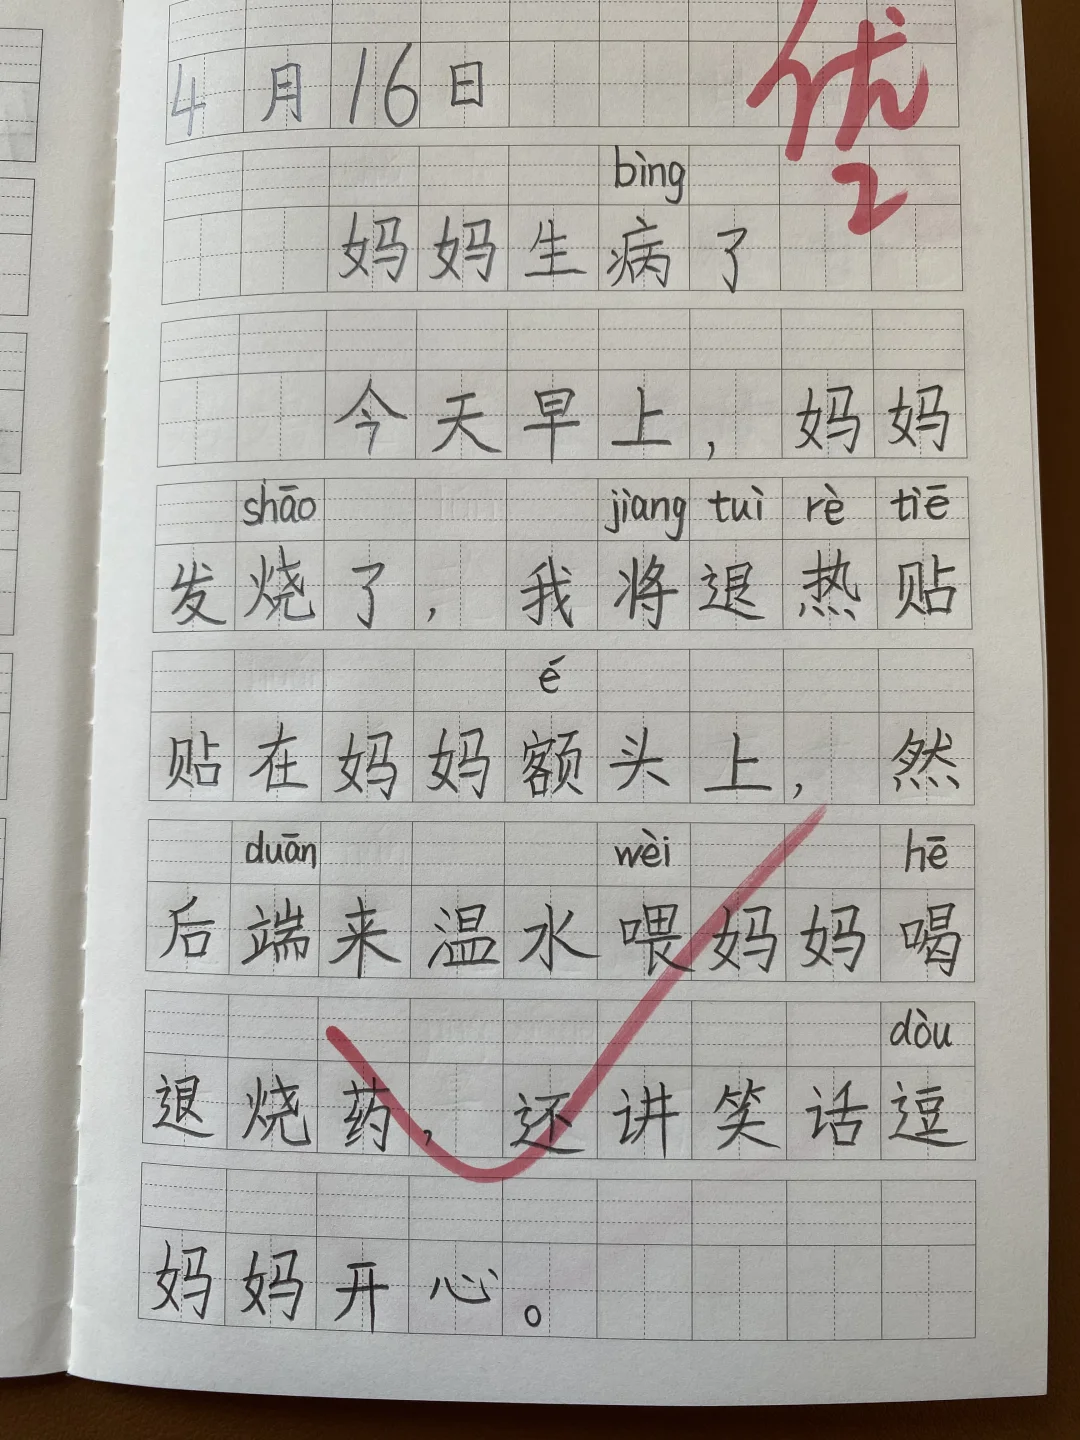 4月16日
优2
bìng
妈妈生病了
今天早上，妈妈
shāo jiāng tuì rè tiē
发烧了，我将退热贴
é
贴在妈妈额头上，然
duān wèi hē
后端来温水喂妈妈喝
dòu
退烧药，还讲笑话逗
妈妈开心。